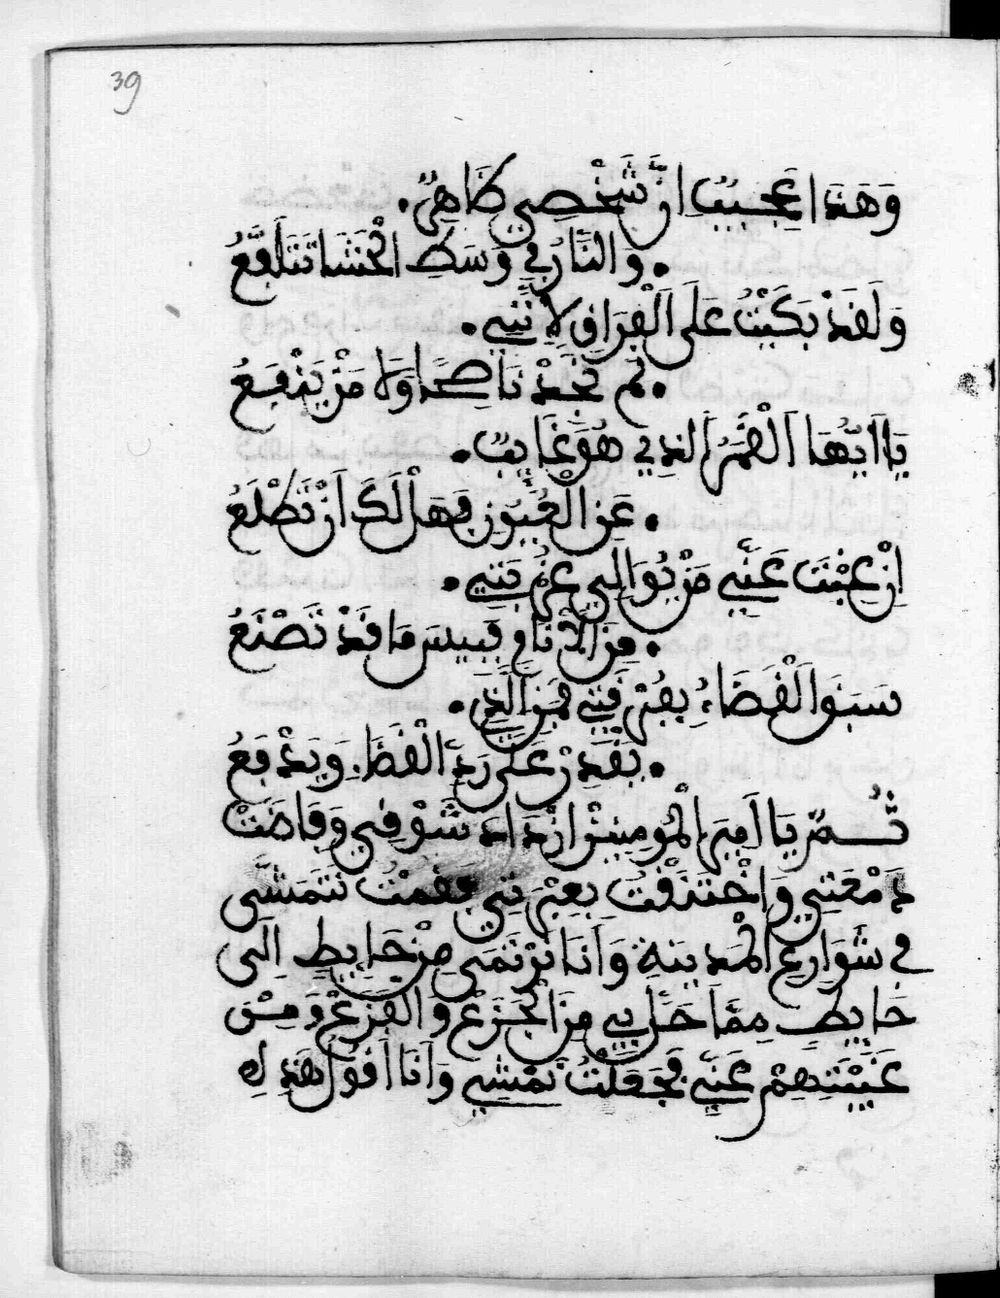 39
وَهَذَا عَجِيبٌ انَّ شَخْصِي طَاهِرٌ.
. وَالنَّارُ فِي وَسَطِ الْحَشَا تَتَلَفَّعُ
وَلَقَدْ بَكَيْتُ عَلَى الْفِرَاقِ لِأَنَّنِي.
. لَمْ نَجْدْ نَاصِرًا وَلَا مَنْ يَنْفَعُ
يَا اَيُّهَا اَلْقَمَرُ الَّذِي هُوَ غَايِبٌ.
. عَنِ الْعُيُونِ فَهَلْ لَكَ اَنْ تَطْلَعُ
اِنْ غِبْتَ عَنِّي مَنْ يُوَالِي غُرْبَتِي.
. مِنَ الْأَنَامِ فَبِيسَ مَا قَدْ تَصْنَعُ
سَبَقَ الْقَضَاءُ بِفُرْقَتِي فَمَنِ الَّذِي.
. يَقْدَرْ عَلَى رَدِّ الْقَضَاءِ وَيَدْفَعُ
ثُمَّ يَا اَمِيرَ الْمُومِنِينَ ازْدَادَ شَوْقِي وَفَاضَتْ
دَمْعَتِي وَاخْتَنَقْتُ بِعَبْرَتِي فَقُمْتُ نَتَمَشَّى
فِي شَوَارِعِ الْمَدِينَةِ وَاَنَا نَرْتَمَى مِنْ حَايِطٍ اِلَى
حَايِطٍ مِمَّا حَلَّ بِي مِنَ الْجَزَعْ وَالْفَزَعْ وَمِنْ
غَيْبَتِهِمْ عَنِّي فَجَعَلْتُ نَمْشِي وَاَنَا اَقُولُ هَذِهِ